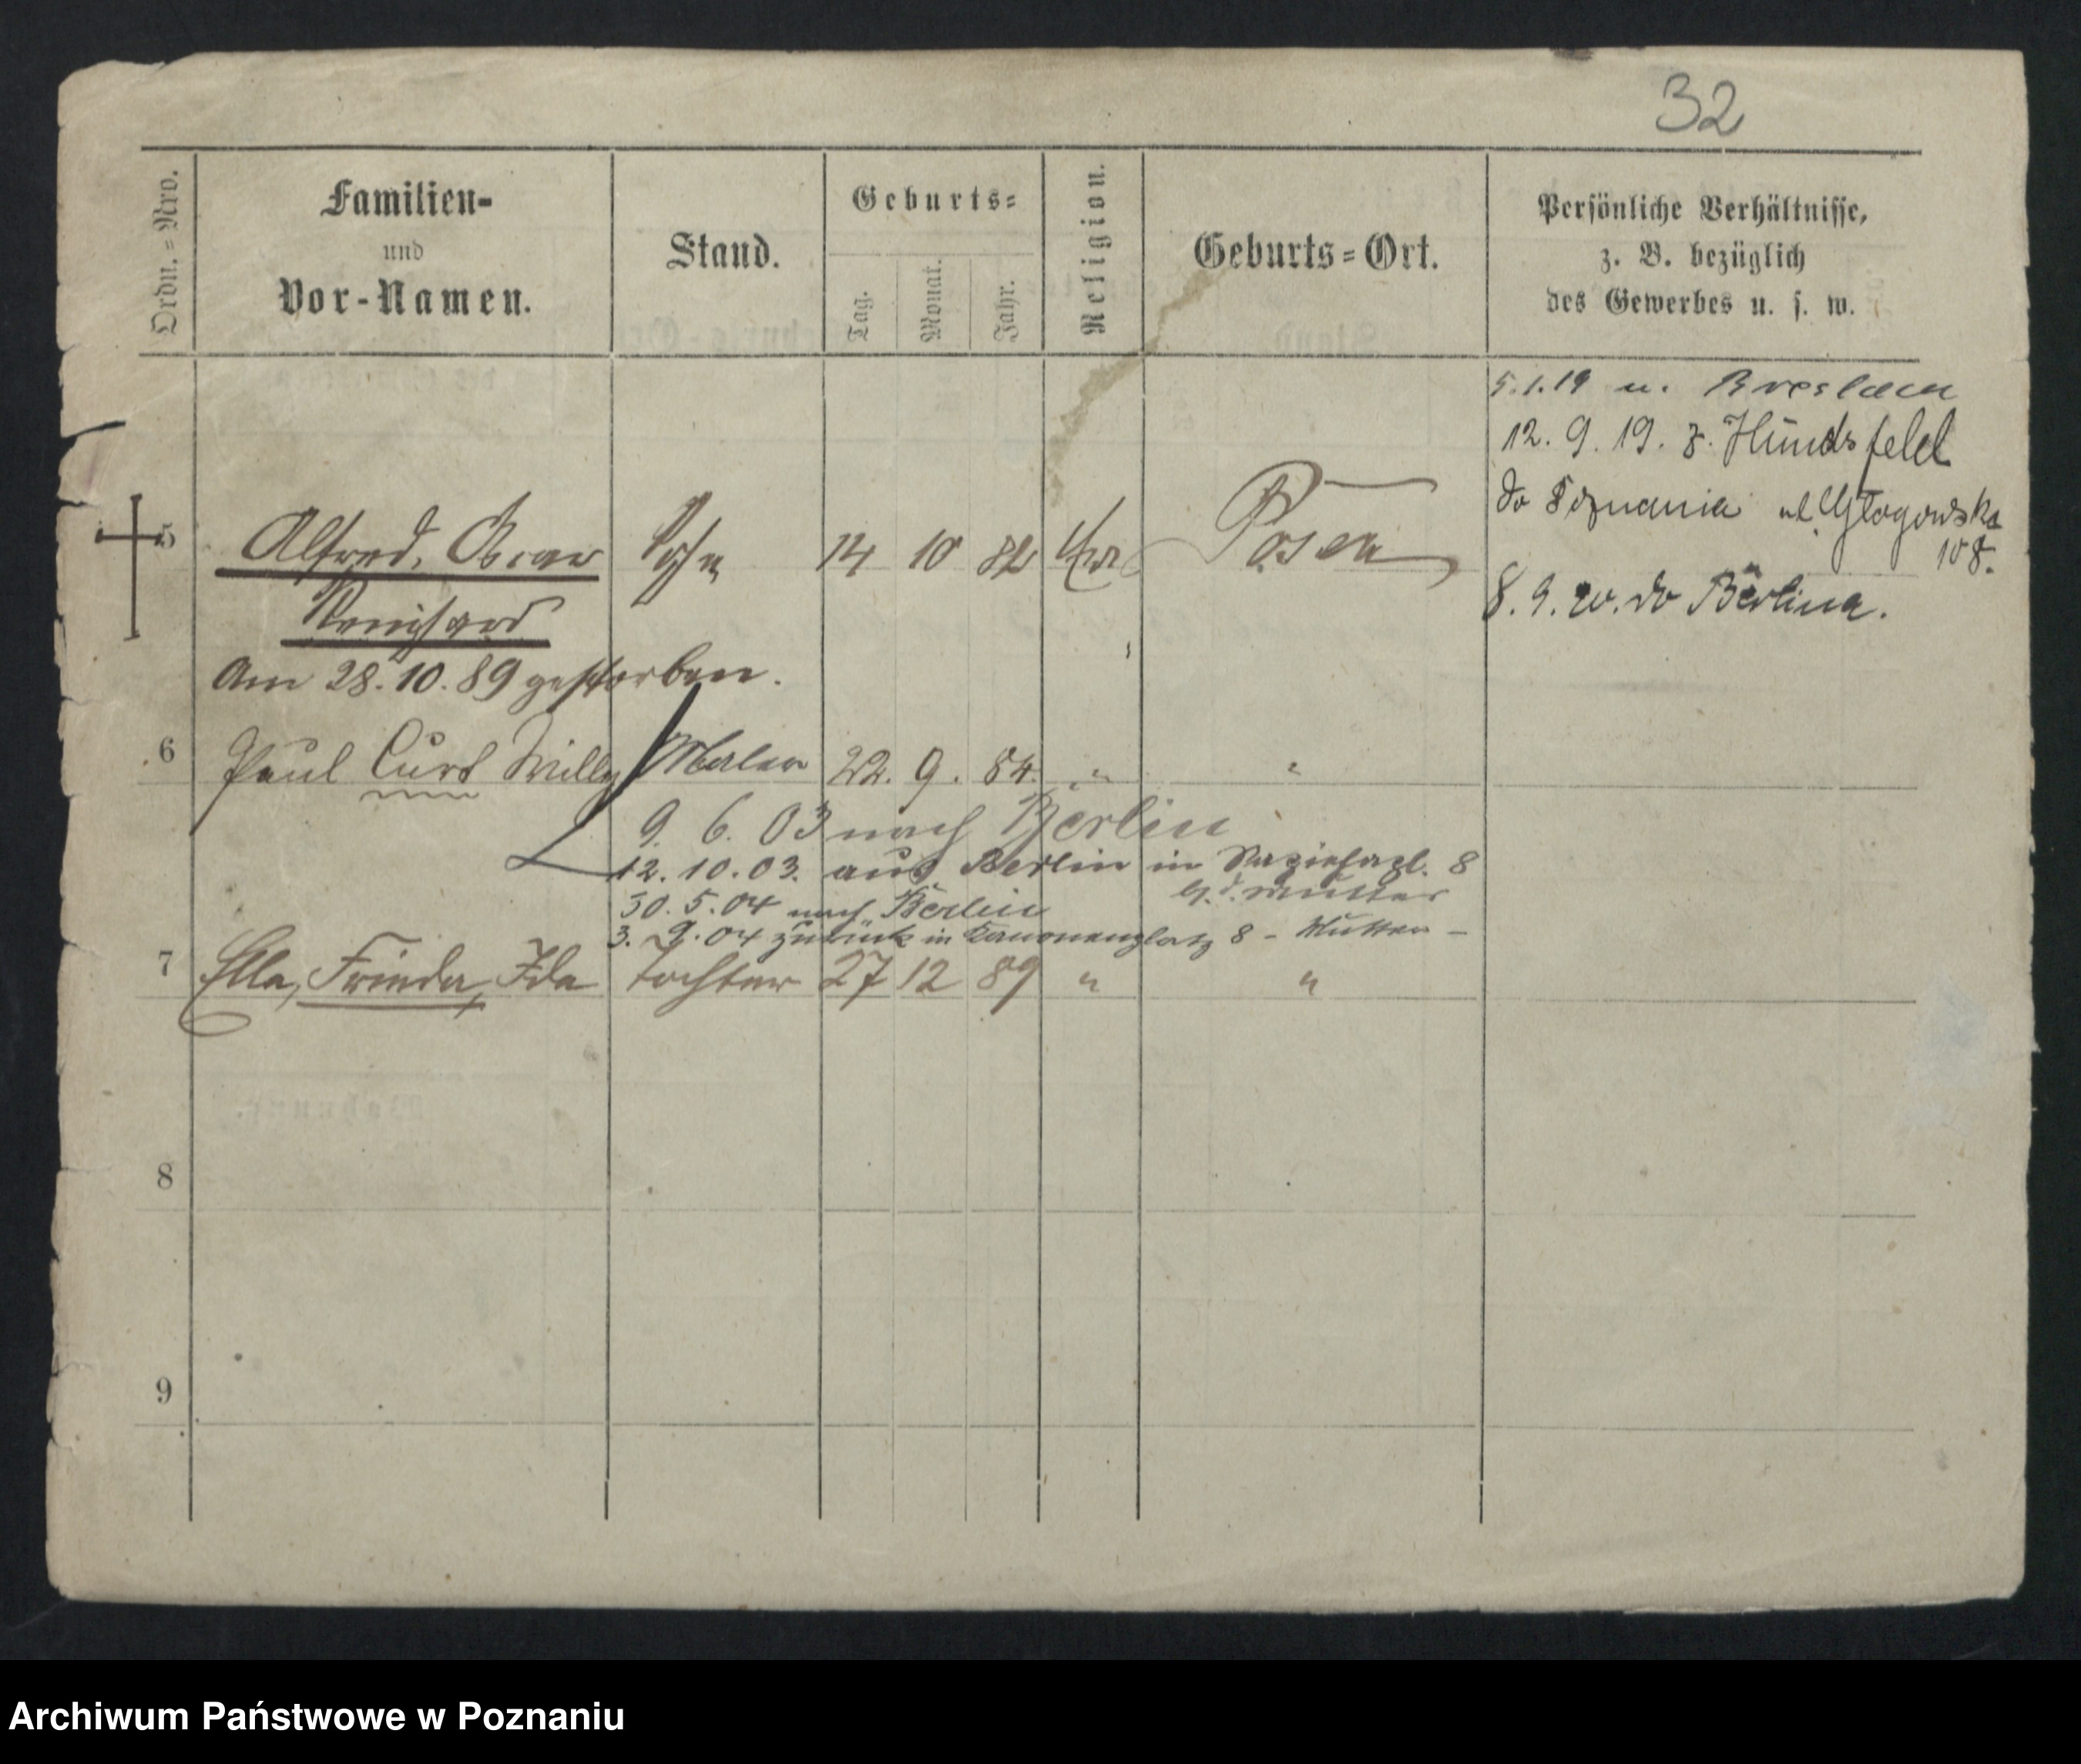 32
Ordn.=Nro.
Familien-
und
Vor-Namen.
Stand.
Geburts=
Tag.
Monat.
Jahr.
Religion.
Geburts=Ort.
Persönliche Verhältnisse,
z. B. bezüglich
des Gewerbes u. s. w.
5.1.19 n. Breslau
12. 9. 19. z. Hundsfeld
do Poznania ul. Głogowska
108.
8. 9. 20. do Berlina.
5 Alfred, Oscar Sohn 14 10 82 Posen
Reinhard
Am 28.10.89 gestorben.
6 Paul Curt Willy Maler 22. 9. 84. " "
9. 6. 03 nach Berlin
12. 10. 03. aus Berlin in 8
b. d. Mutter
30. 5. 04 nach Berlin
3. 9. 04 zurück in Kanonenplatz 8 - Mutter -
7 Ella, Frieda, Ida Tochter 27 12 89 " "
8
9
Archiwum Państwowe w Poznaniu